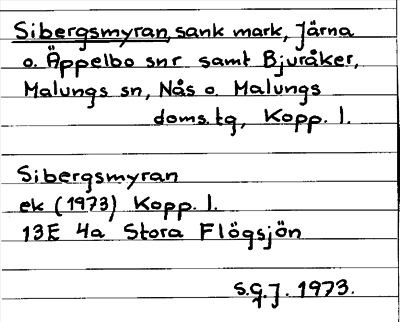 Sibergsmyran, sank mark, Järna
o. Äppelbo snr samt Bjuråker,
Malungs sn, Nås o. Malungs
doms.tg, Kopp. l.
Sibergsmyran
ek (1973) Kopp. l.
13E 4a Stora Flögsjön
S.G.J. 1973.